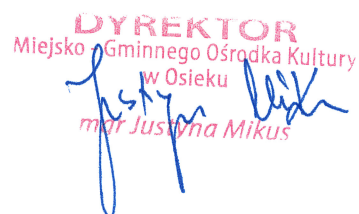 DYREKTOR
Miejsko - Gminnego Ośrodka Kultury
w Osieku
mgr Justyna Mikus
Justyna Mikus